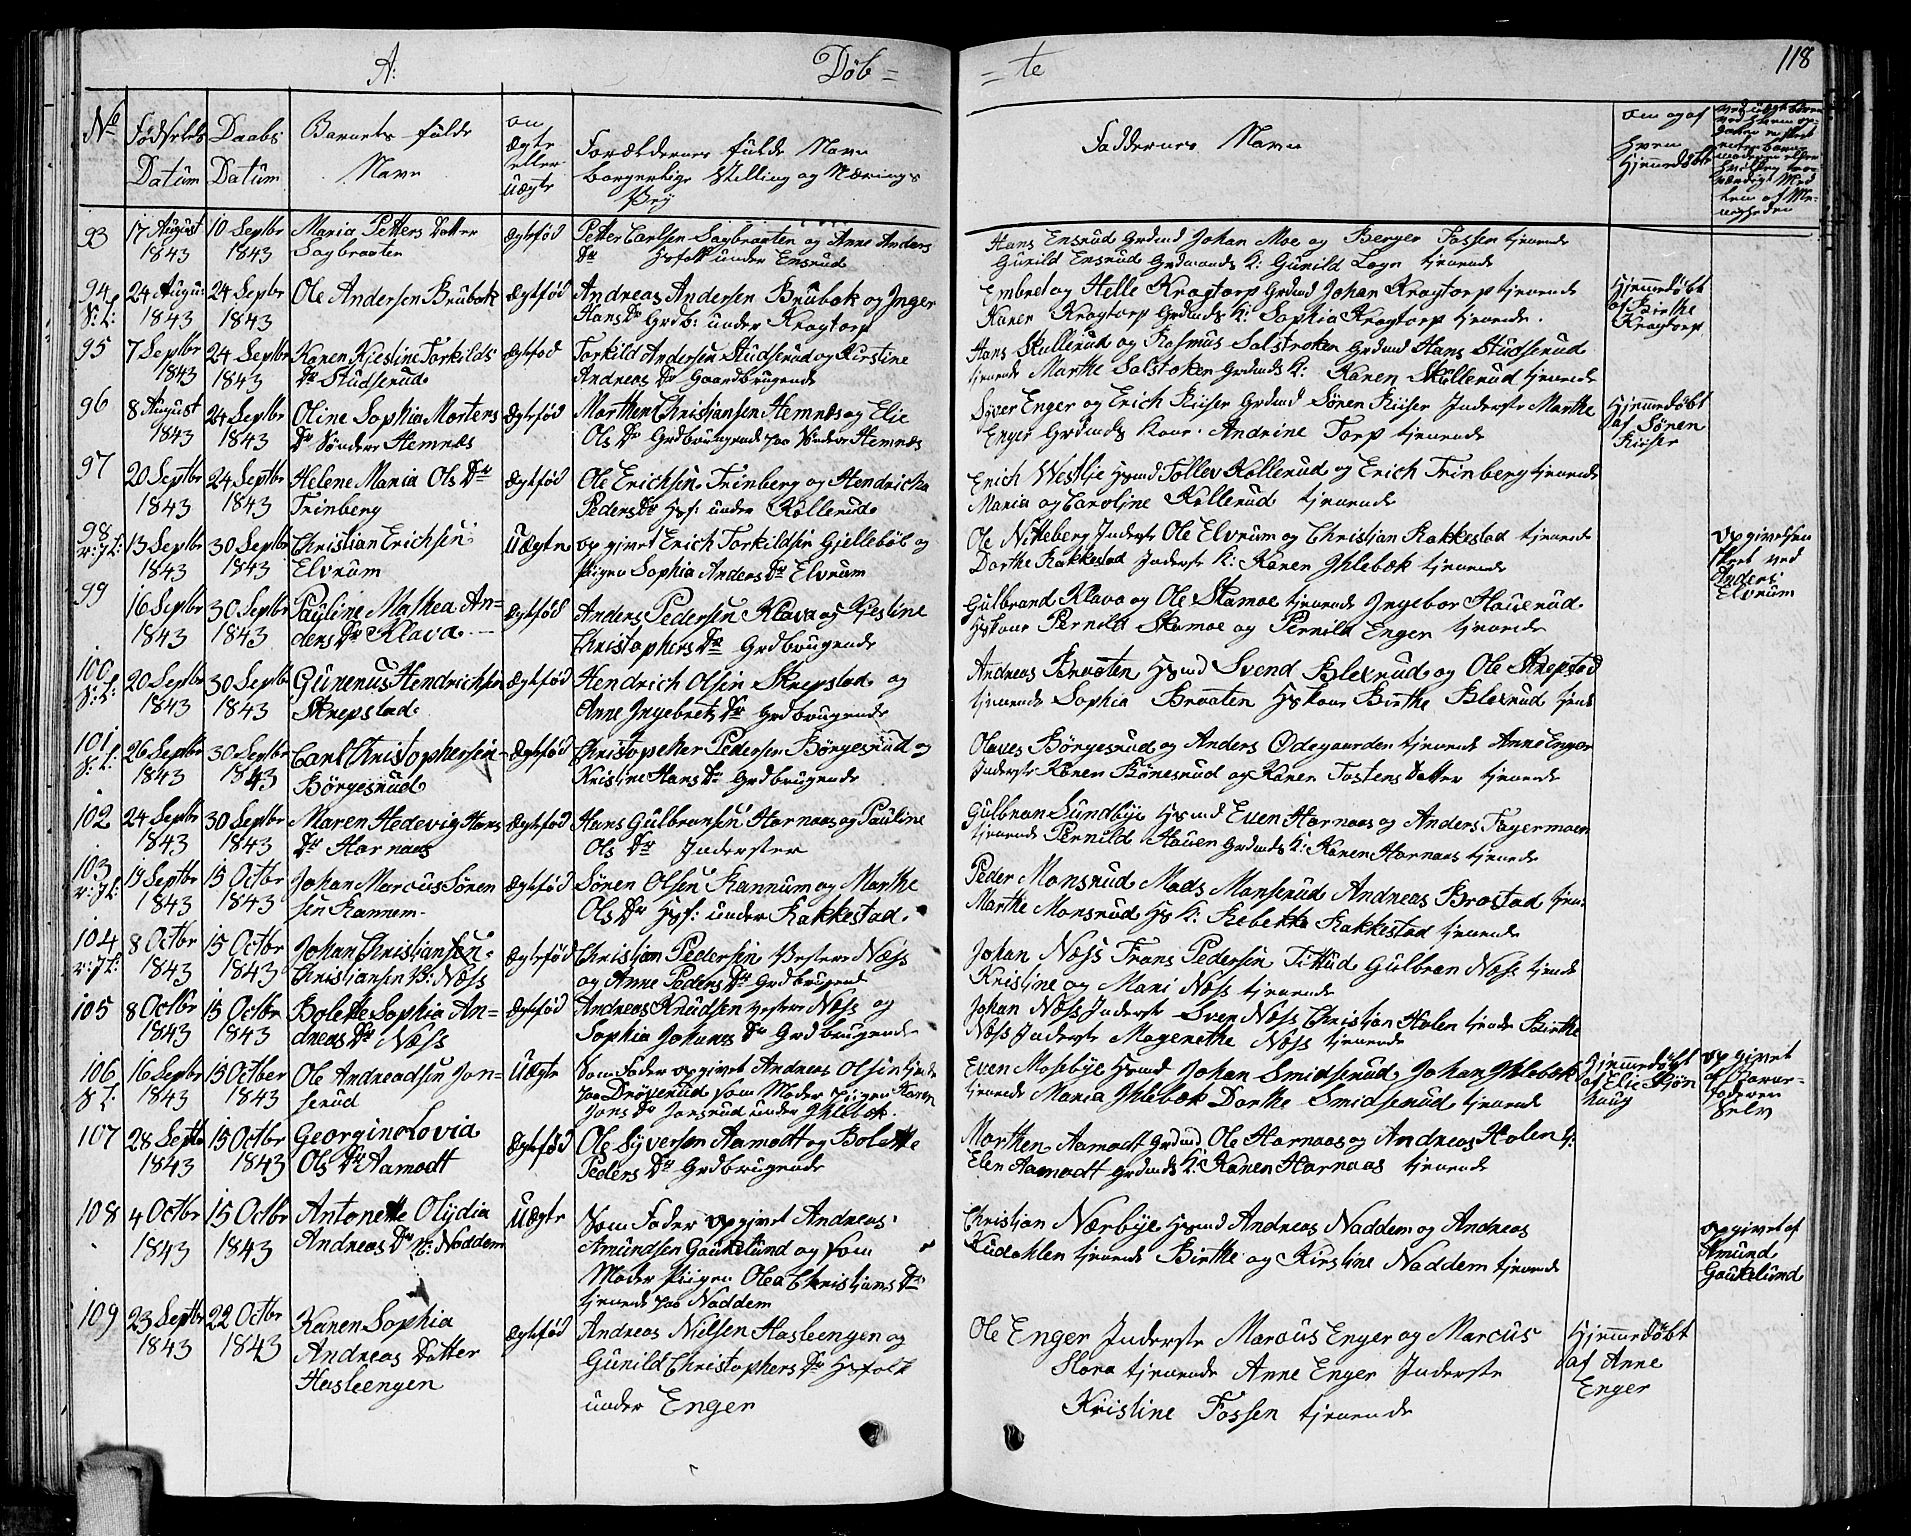 A: Döb = = te 118
No
Födsels Datum
Daabs Datum
Barnets fulde Navn
om ægte eller uægte
Forældrenes fulde Navn
borgerlige Stilling og Nærings
Vej
Faddernes Navn
om og af
hvem
hjemmedöbt
93 17 August 1843 10 Septbr 1843 Maria Petters Datter Sagbraaten ægtefød
Petter Carlsen Sagbraaten og Anne Anders
Dr Hsfolk under Ensrud
Hans Ensrud Grdmd Johan Moe og Berger Fossen tjenende
Gunild Ensrud Grdmands K: Gunild tjenende
94 24 Augu: 1843 24 Septbr 1843 Ole Andersen Brubak ægtefød
Andreas Andersen Brubak og Inger
Hans Dr Grdb: under Krogtorp
Embret og Helle Krogtorp Grdmd Johan Krogtorp tjenende
Karen Krogtorp Grdmds K: Sophia Krogtorp tjenende.
Hjemmedöbt af Birthe Krogtorp
95 7 Septbr 1843 24 Septbr 1843 Karen Kiestine Torkilds Dr Studserud ægtefød
Torkild Andersen Studserud og Kirstine
Andreas Dr Gaardbrugende
Hans Skullerud og Rasmus Salstroken Grdmd Hans Studserud
tjenende Marthe Salstoken Grdmds K: Karen Skullerud tjenende
96 8 August 1843 24 Septbr 1843 Oline Sophia Mortens Dr Söndre Hemnæs ægtefød
Morthen Christjansen Hemnæs og Elie
Ols Dr Grdbrugende paa Söndre Hemnæs
Syver Enger og Erich Kiiser Grdmd Sören Kiiser Inderste Marthe
Enger Grdmds Kone. Andrine Torp tjenende
Hjemmedöbt af Sören Kiiser
97 20 Septbr 1843 24 Septbr 1843 Helene Maria Ols Dr Trinberg ægtefød
Ole Erichsen Trinberg og Hendricha
Peders Dr Hsf: under Kollerud
Erich Westlje Hsmd Tollev Kollerud og Erich Trinberg tjenende
Maria og Caroline Kollerud tjenende
98 13 Septbr 1843 30 Septbr 1843 Christian Erichsen Elvrum uægte
opgivet Erich Torkildsen Gjelleböl og
Pigen Sophia Andreas Dr Elvrum
Ole Nitteberg Inderste Ole Elvrum og Christjan Kakkestad tjenende
Dorthe Kakkestad Inderste K: Karen Ihlebæk tjenende
opgivelsen skeet ved Anders Elvrum
99 16 Septbr 1843 30 Septbr 1843 Pauline Mathea Anders Dr Klava ægtefød
Anders Pedersen Klava og Kjestine
Christophers Dr Grdbrugende
Gulbrand Klava og Ole Skamoe tjenende Ingebor Hauerud
Hskone Pernild Skamoe og Pernild Enger tjenende
100 S:L: 20 Septbr 1843 30 Septbr 1843 Gunenus Hendrichsen Skrepstad ægtefød
Hendrich Olsen Skrepstad og
Anne Ingebrets Dr Grdbrugende
Andreas Braaten Hsmd Svend Blexrud og Ole Skrepstad
tjenende Sophia Braaten Hskone Birthe Blexrud tjend
101 S:L: 26 Septbr 1843 30 Septbr 1843 Carl Christophersen Börgesrud ægtefød
Christopher Pedersen Börgesrud og
Kristine Hans Dr Grdbrugende
Olaves Börgesrud og Anders Ödegaarden tjenende Anne Enger
Inderste Karen Bönesrud og Karen Tostens Datter tjenende
102 24 Septbr 1843 30 Septbr 1843 Maren Hedevig Hans Dr Harnaas ægtefød
Hans Gulbransen Harnaas og Pauline
Ols Dr Inderster
Gulbran Sundbye Hsmd Even Harnaas og Anders Fagermoen
tjenende Pernild Hauen Grdmds K: Karen Harnaas tjenende
103 13 Septbr 1843 15 Octbr 1843 Johan Marcus Sörensen Kannem ægtefød
Sören Olsen Kannum og Marthe
Ols Dr Hsf: under Kakkestad
Peder Monsrud Mads Monserud Andreas Brostad tjen:
Marthe Monsrud Hs K: Rebekka Kakkestad tjenende
104 8 Octbr 1843 15 Octbr 1843 Johan Christiansen Christiansen V: Næss ægtefød
Christjan Pedersen Vestere Næss
og Anne Peders Dr Grdbrugend
Johan Næss Frans Pedersen Gulbran Næss tjende
Kristine og Mari Næss tjenende
105 8 Octbr 1843 15 Octbr 1843 Bolette Sophia Andreas Dr Næss ægtefød
Andreas Knudsen vestere Næss og
Sophia Johanes Dr Grdbrugende
Johan Næss Inderste Sven Næss Christjan Holen tjende Birthe
Næss Inderste Magenethe Næss tjenende
106 S:L: 16 Septbr 1843 15 October 1843 Ole Andreadsen Jonserud uægte
Som Fader opgivet Andreas Olsen tjende
paa Dröverud som Moder pigen Karen
Jons Dr Jonsrud under Ihlebæk.
Even Mosebye Hsmd Johan Smidserud Johan Ihlebæk
tjenende Maria Ihlebæk Dorthe Smidserud tjenende
Hjemmedöbt af Elie Björnhaug
opgivet af Barnefaderen selv
107 28 Septbr 1843 15 Octbr 1843 Georgine Lovia Ols Dr Aamodt ægtefød
Ole Syversen Aamodt og Bolette
Peders Dr Grdbrugende
Morthen Aamodt Grdmd Ole Harnaas og Andreas Holen
Elen Aamodt Grdmds K: Karen Harnaas tjenende
108 4 Octbr 1843 15 Octbr 1843 Antonette Olydia Andreas Dr N: Naddem uægte
Som Fader opgivet Andreas
Amundsen Gaukelund og som
Moder Piigen Olea Christjans Dr
tjenende paa Naddem
Christjan Nærbye Hsmd Andreas Naddem og Andreas
Kudahlen tjenende Birthe og Kirstine Naddem tjenende
opgivet af Amund Gaukelund
109 23 Septbr 1843 22 Octbr 1843 Karen Sophia Andreas Datter Hasleengen ægtefød
Andreas Nielsen Hasleengen og
Gunild Christophers Dr Hsfolk
under Enger
Ole Enger Inderste Marcus Enger og Marcus
Slora tjenende Anne Enger Inderste
Kristine Fossen tjenende
Hjemmedöbt af Anne Enger